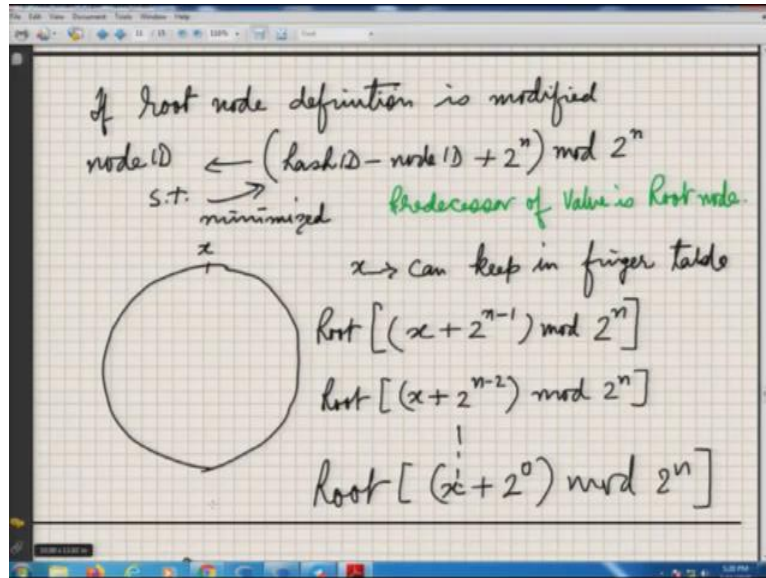 File Edit View Document Tools Window Help
11 / 15
If Root node definition is modified
nodeID ← (hashID - nodeID + 2ⁿ) mod 2ⁿ
s.t. minimized
Predecessor of Value is Root node.
x
x → can keep in finger table
Root [(x + 2ⁿ⁻¹) mod 2ⁿ]
Root [(x + 2ⁿ⁻²) mod 2ⁿ]
Root [(x + 2⁰) mod 2ⁿ]
5:20 PM